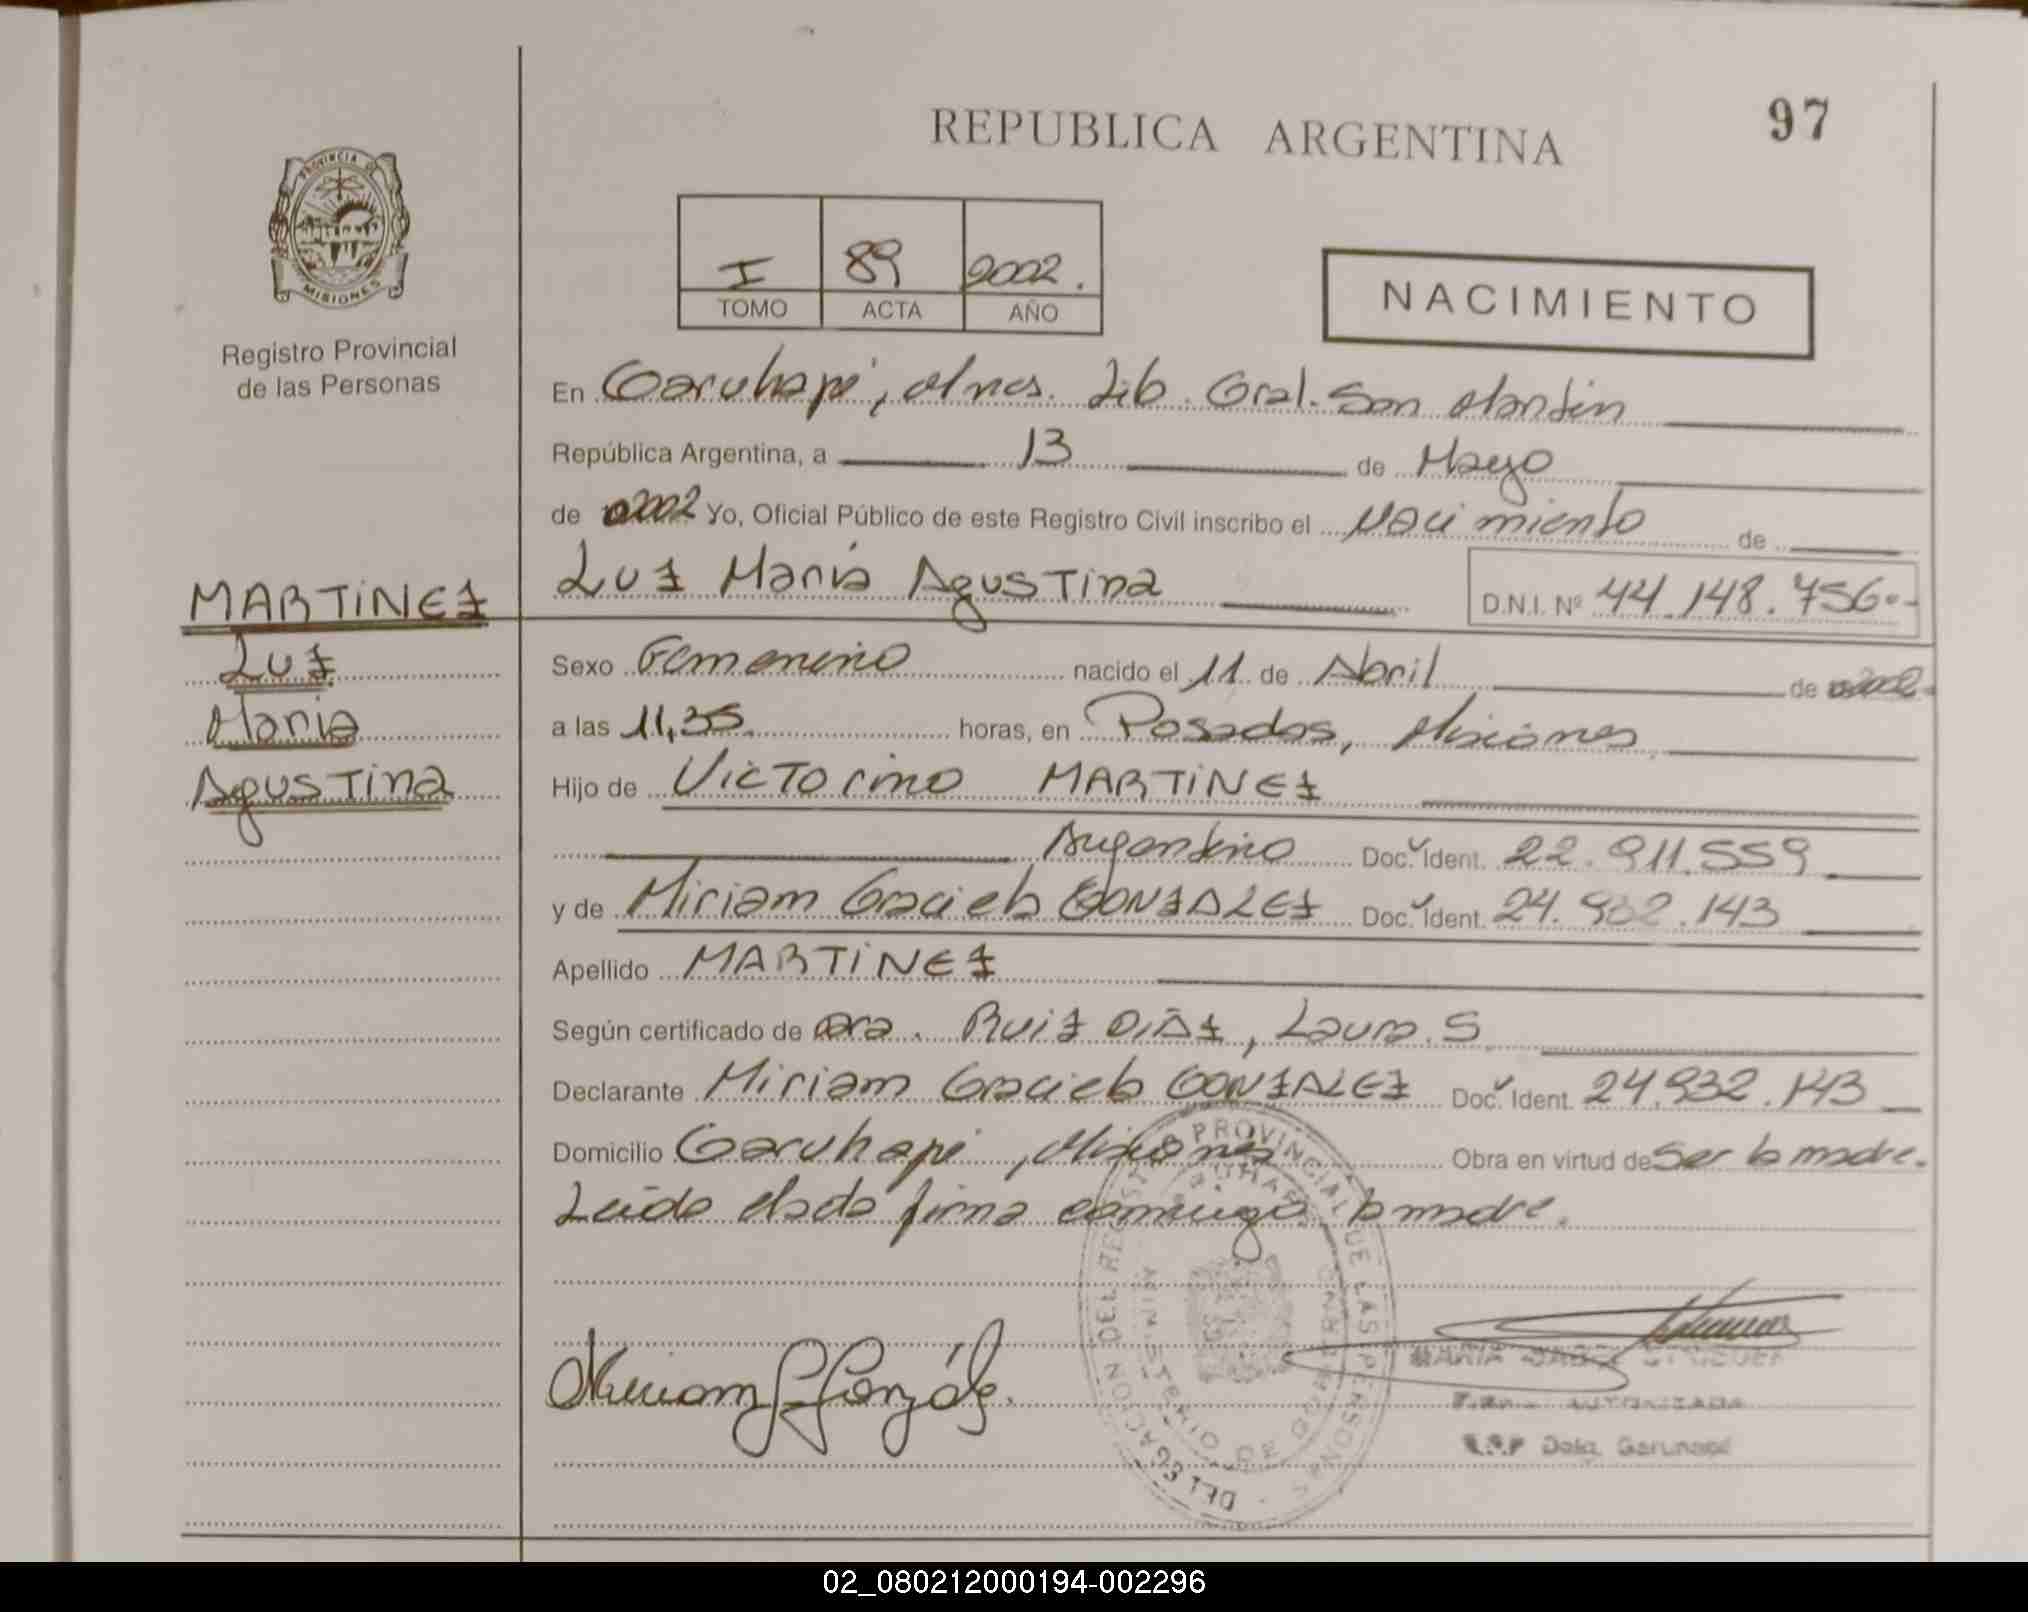 REPUBLICA ARGENTINA
97
PROVINCIA DE
MISIONES
Registro Provincial
de las Personas
I 89 2002.
TOMO ACTA AÑO
NACIMIENTO
En Garuhapé, Mnes. Lib. Gral. San Martin
República Argentina, a 13 de Mayo
de 2002 Yo, Oficial Público de este Registro Civil inscribo el Nacimiento de
Luz Maria Agustina
D.N.I. Nº 44.148.756.-
MARTINEZ
Luz
Maria
Agustina
Sexo Femenino nacido el 11 de Abril de 2002
a las 11,35 horas, en Posadas, Misiones
Hijo de Victorino MARTINEZ
Argentino Doc. Ident. 22.911.559
y de Miriam Graciela GONZALEZ Doc. Ident. 24.932.143
Apellido MARTINEZ
Según certificado de Dra. RUIZ DIAZ, Laura S
Declarante Miriam Graciela GONZALEZ Doc. Ident. 24.932.143
Domicilio Garuhapé, Misiones Obra en virtud de Ser la madre.
Leída el acta firma conmigo la madre.
DELEGACION DEL REGISTRO PROVINCIAL DE LAS PERSONAS
MINISTERIO DE GOBIERNO
Miriam G González.
MARIA
FIRMA AUTORIZADA
R.P.P Deleg. Garuhapé
02_080212000194-002296